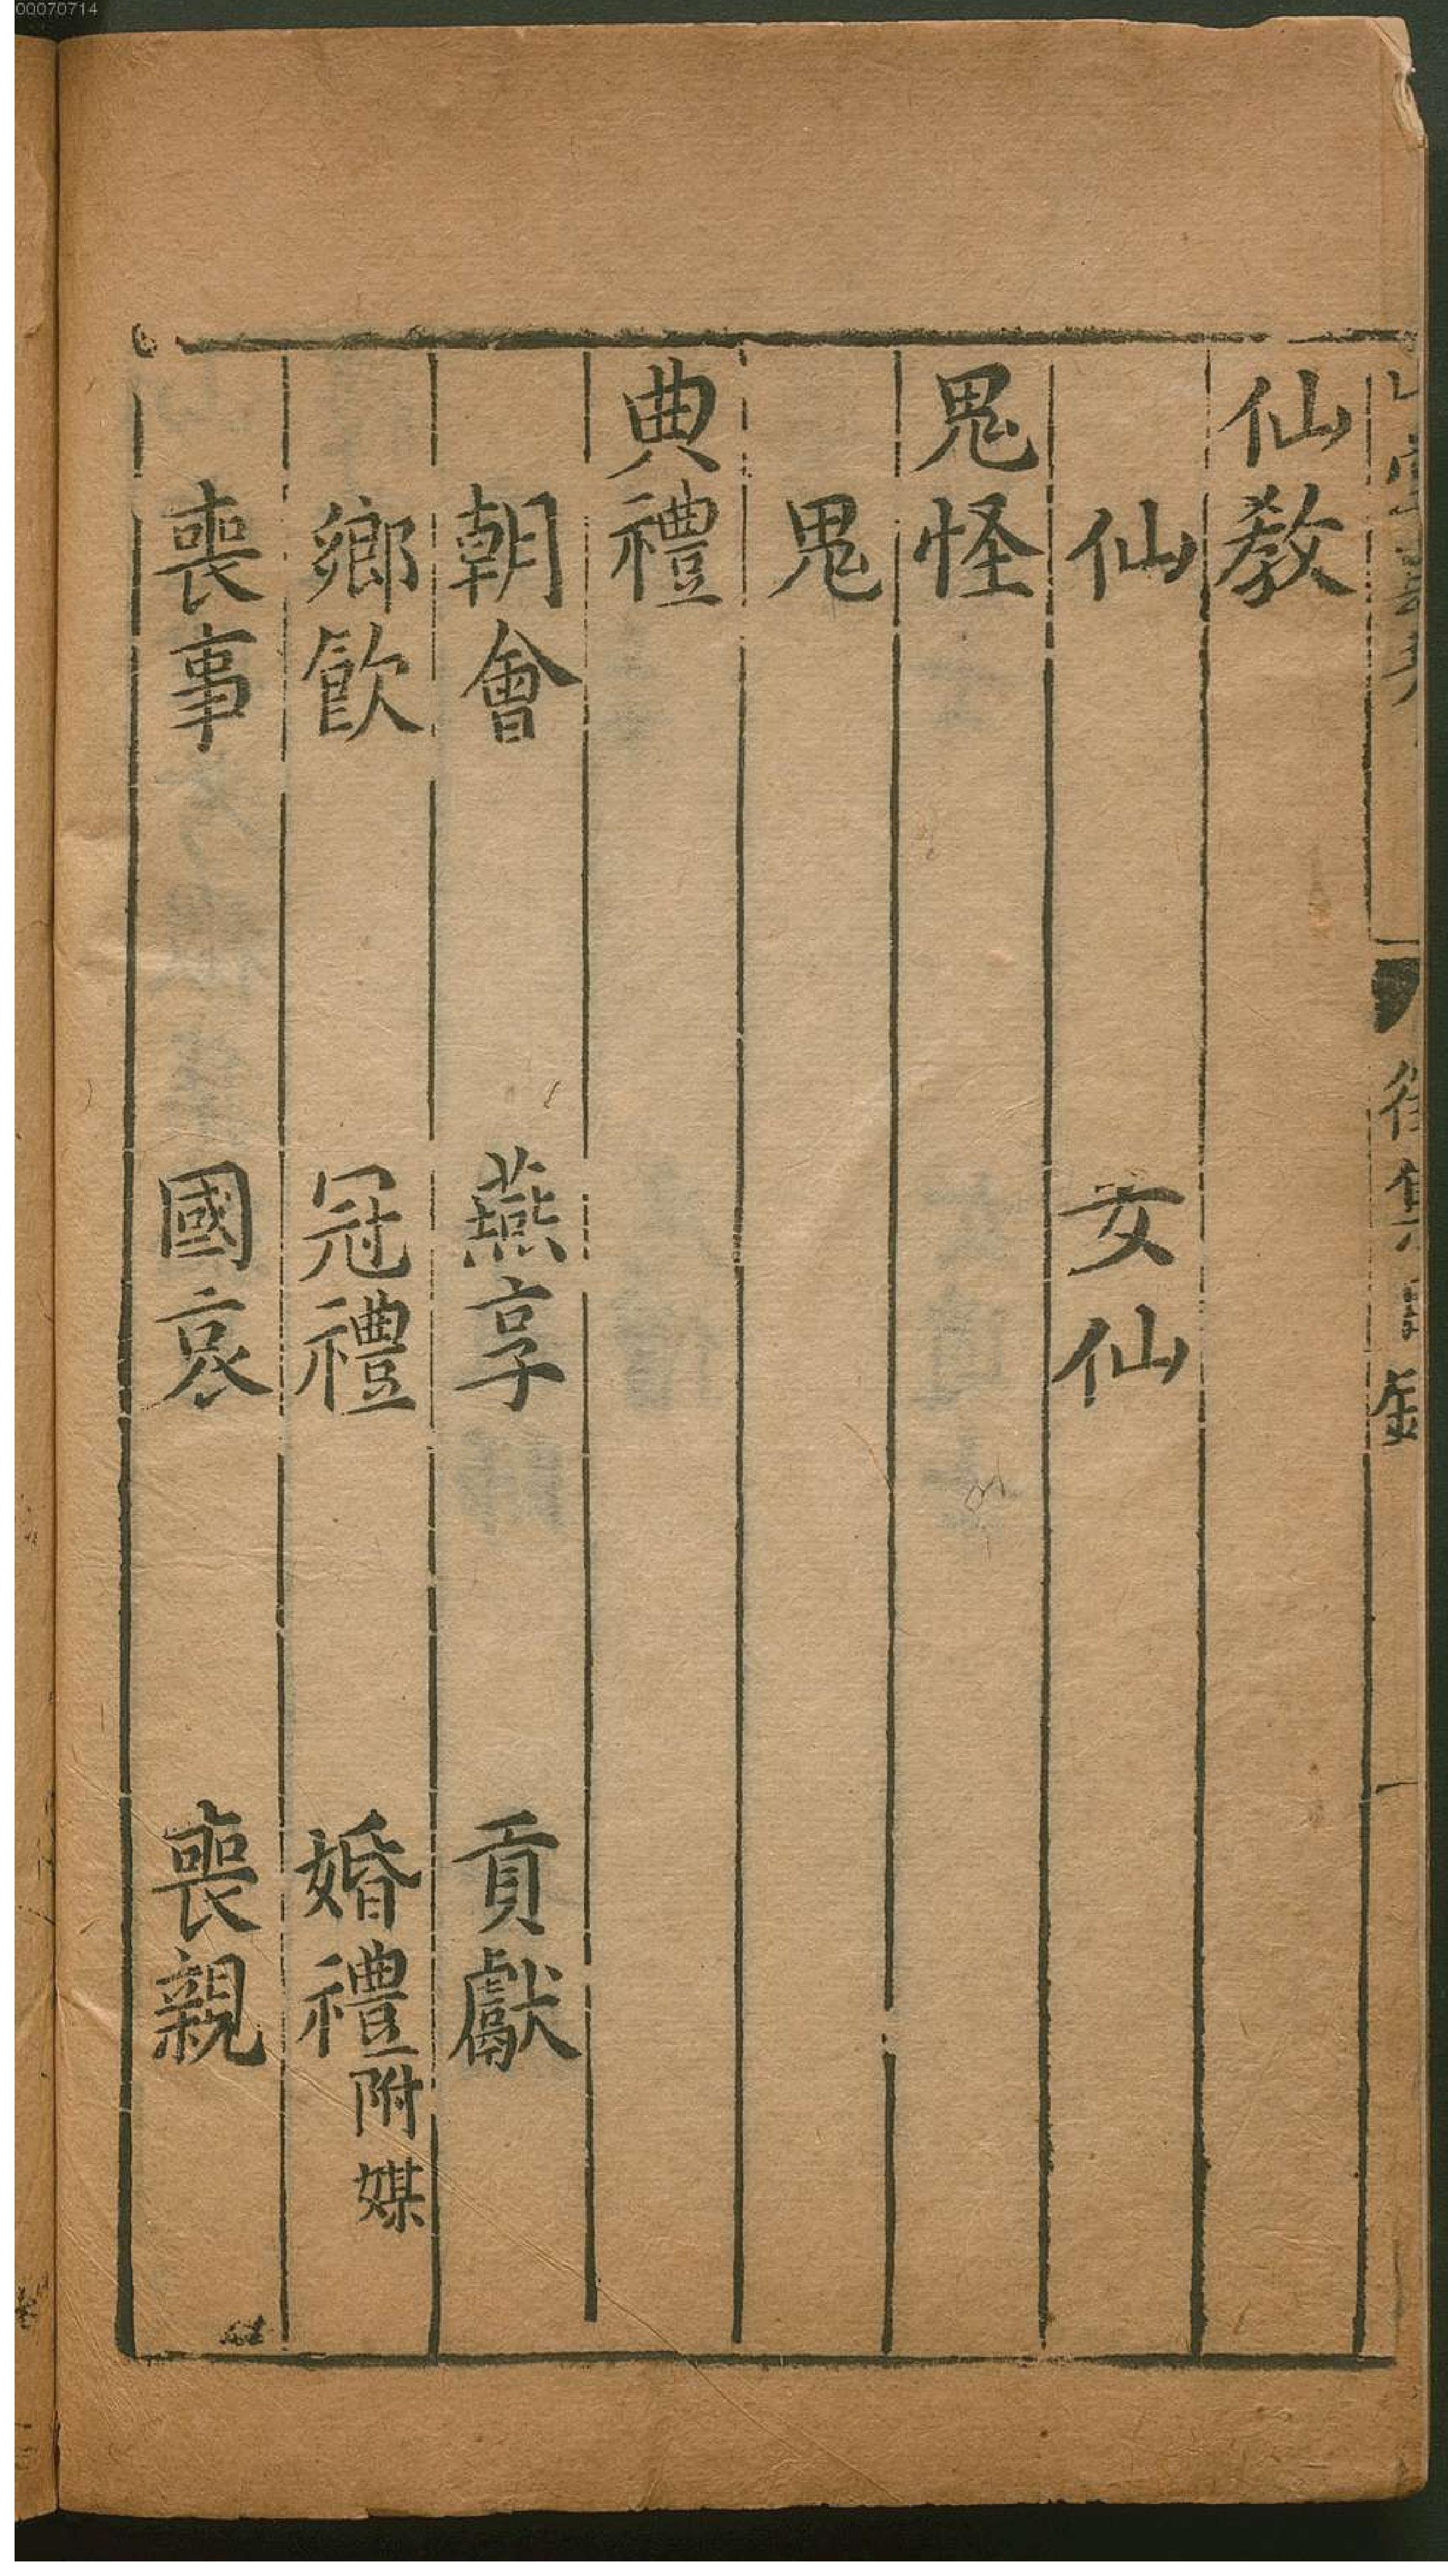 00070714
仙教
仙 女仙
鬼怪
鬼
典禮
朝會 燕享 貢獻
鄉飲 冠禮 婚禮附媒
喪事 國哀 喪親